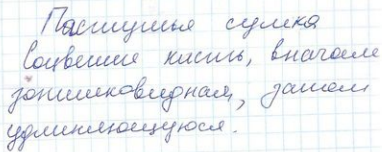 Пастушья сумка
Соцветие кисть, вначале
зонтиковидная, затем
удлиняющуюся.